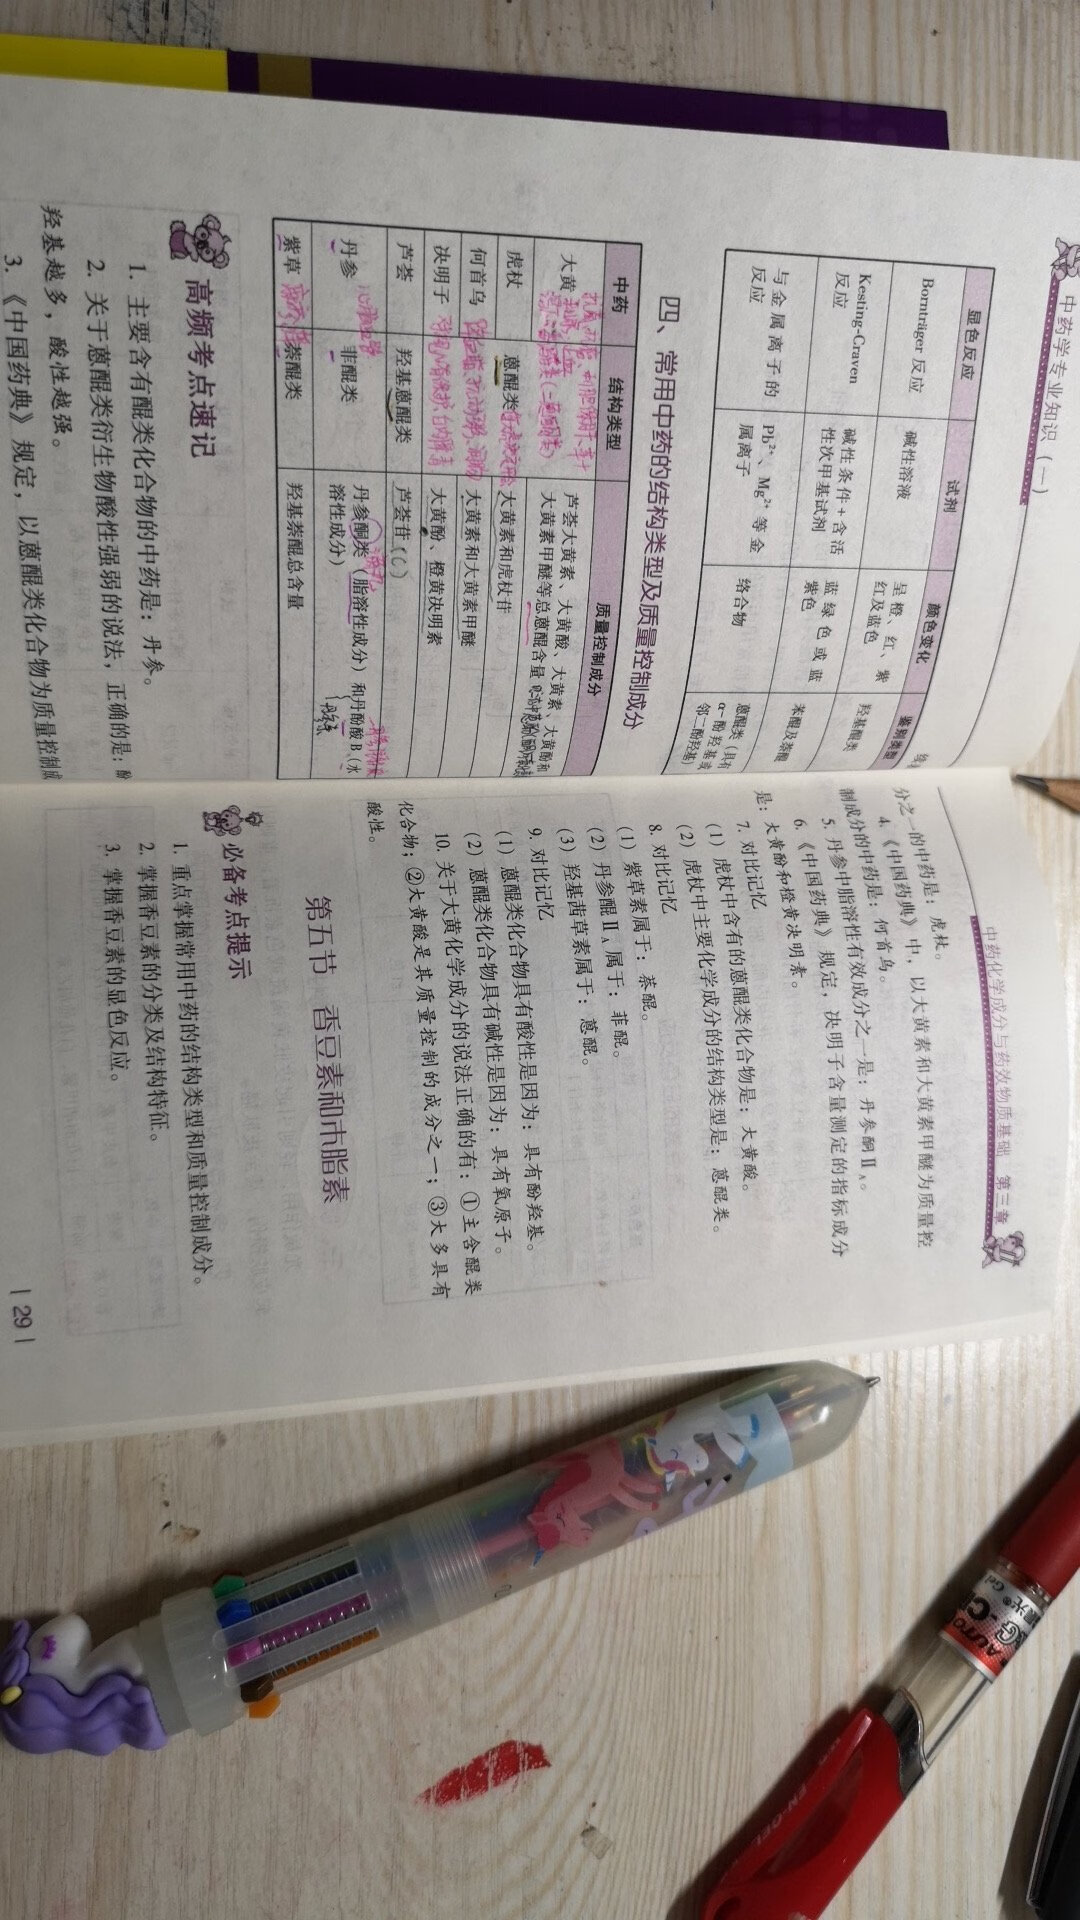 中药学专业知识（一）
显色反应 试剂 颜色变化 鉴别类型
Bornträger 反应 碱性溶液 呈橙、红、紫红及蓝色 羟基醌类
Kesting-Craven 反应 碱性条件+含活性次甲基试剂 蓝绿色或蓝紫色 苯醌及萘醌
与金属离子的反应 Pb²⁺、Mg²⁺等金属离子 络合物 蒽醌类（具有α-酚羟基或邻二酚羟基）
四、常用中药的结构类型及质量控制成分
中药 结构类型 质量控制成分
大黄 芦荟大黄素、大黄酸、大黄素、大黄酚和大黄素甲醚等总蒽醌含量
虎杖 蒽醌类 大黄素和虎杖苷
何首乌 大黄素和大黄素甲醚
决明子 大黄酚、橙黄决明素
芦荟 羟基蒽醌类 芦荟苷
丹参 菲醌类 丹参酮类（脂溶性成分）和丹酚酸 B（水溶性成分）
紫草 萘醌类 羟基萘醌总含量
高频考点速记
1. 主要含有醌类化合物的中药是：丹参。
2. 关于蒽醌类衍生物酸性强弱的说法，正确的是：酚
羟基越多，酸性越强。
3. 《中国药典》规定，以蒽醌类化合物为质量控制成
中药化学成分与药效物质基础 第三章
分之一的中药是：虎杖。
4. 《中国药典》中，以大黄素和大黄素甲醚为质量控
制成分的中药是：何首乌。
5. 丹参中脂溶性有效成分之一是：丹参酮ⅡA。
6. 《中国药典》规定，决明子含量测定的指标成分
是：大黄酚和橙黄决明素。
7. 对比记忆
（1）虎杖中含有的蒽醌类化合物是：大黄酸。
（2）虎杖中主要化学成分的结构类型是：蒽醌类。
8. 对比记忆
（1）紫草素属于：萘醌。
（2）丹参醌ⅡA属于：菲醌。
（3）羟基茜草素属于：蒽醌。
9. 对比记忆
（1）蒽醌类化合物具有酸性是因为：具有酚羟基。
（2）蒽醌类化合物具有碱性是因为：具有氧原子。
10. 关于大黄化学成分的说法正确的有：①主含醌类
化合物；②大黄酸是其质量控制的成分之一；③大多具有
酸性。
第五节 香豆素和木脂素
必备考点提示
1. 重点掌握常用中药的结构类型和质量控制成分。
2. 掌握香豆素的分类及结构特征。
3. 掌握香豆素的显色反应。
| 29 |